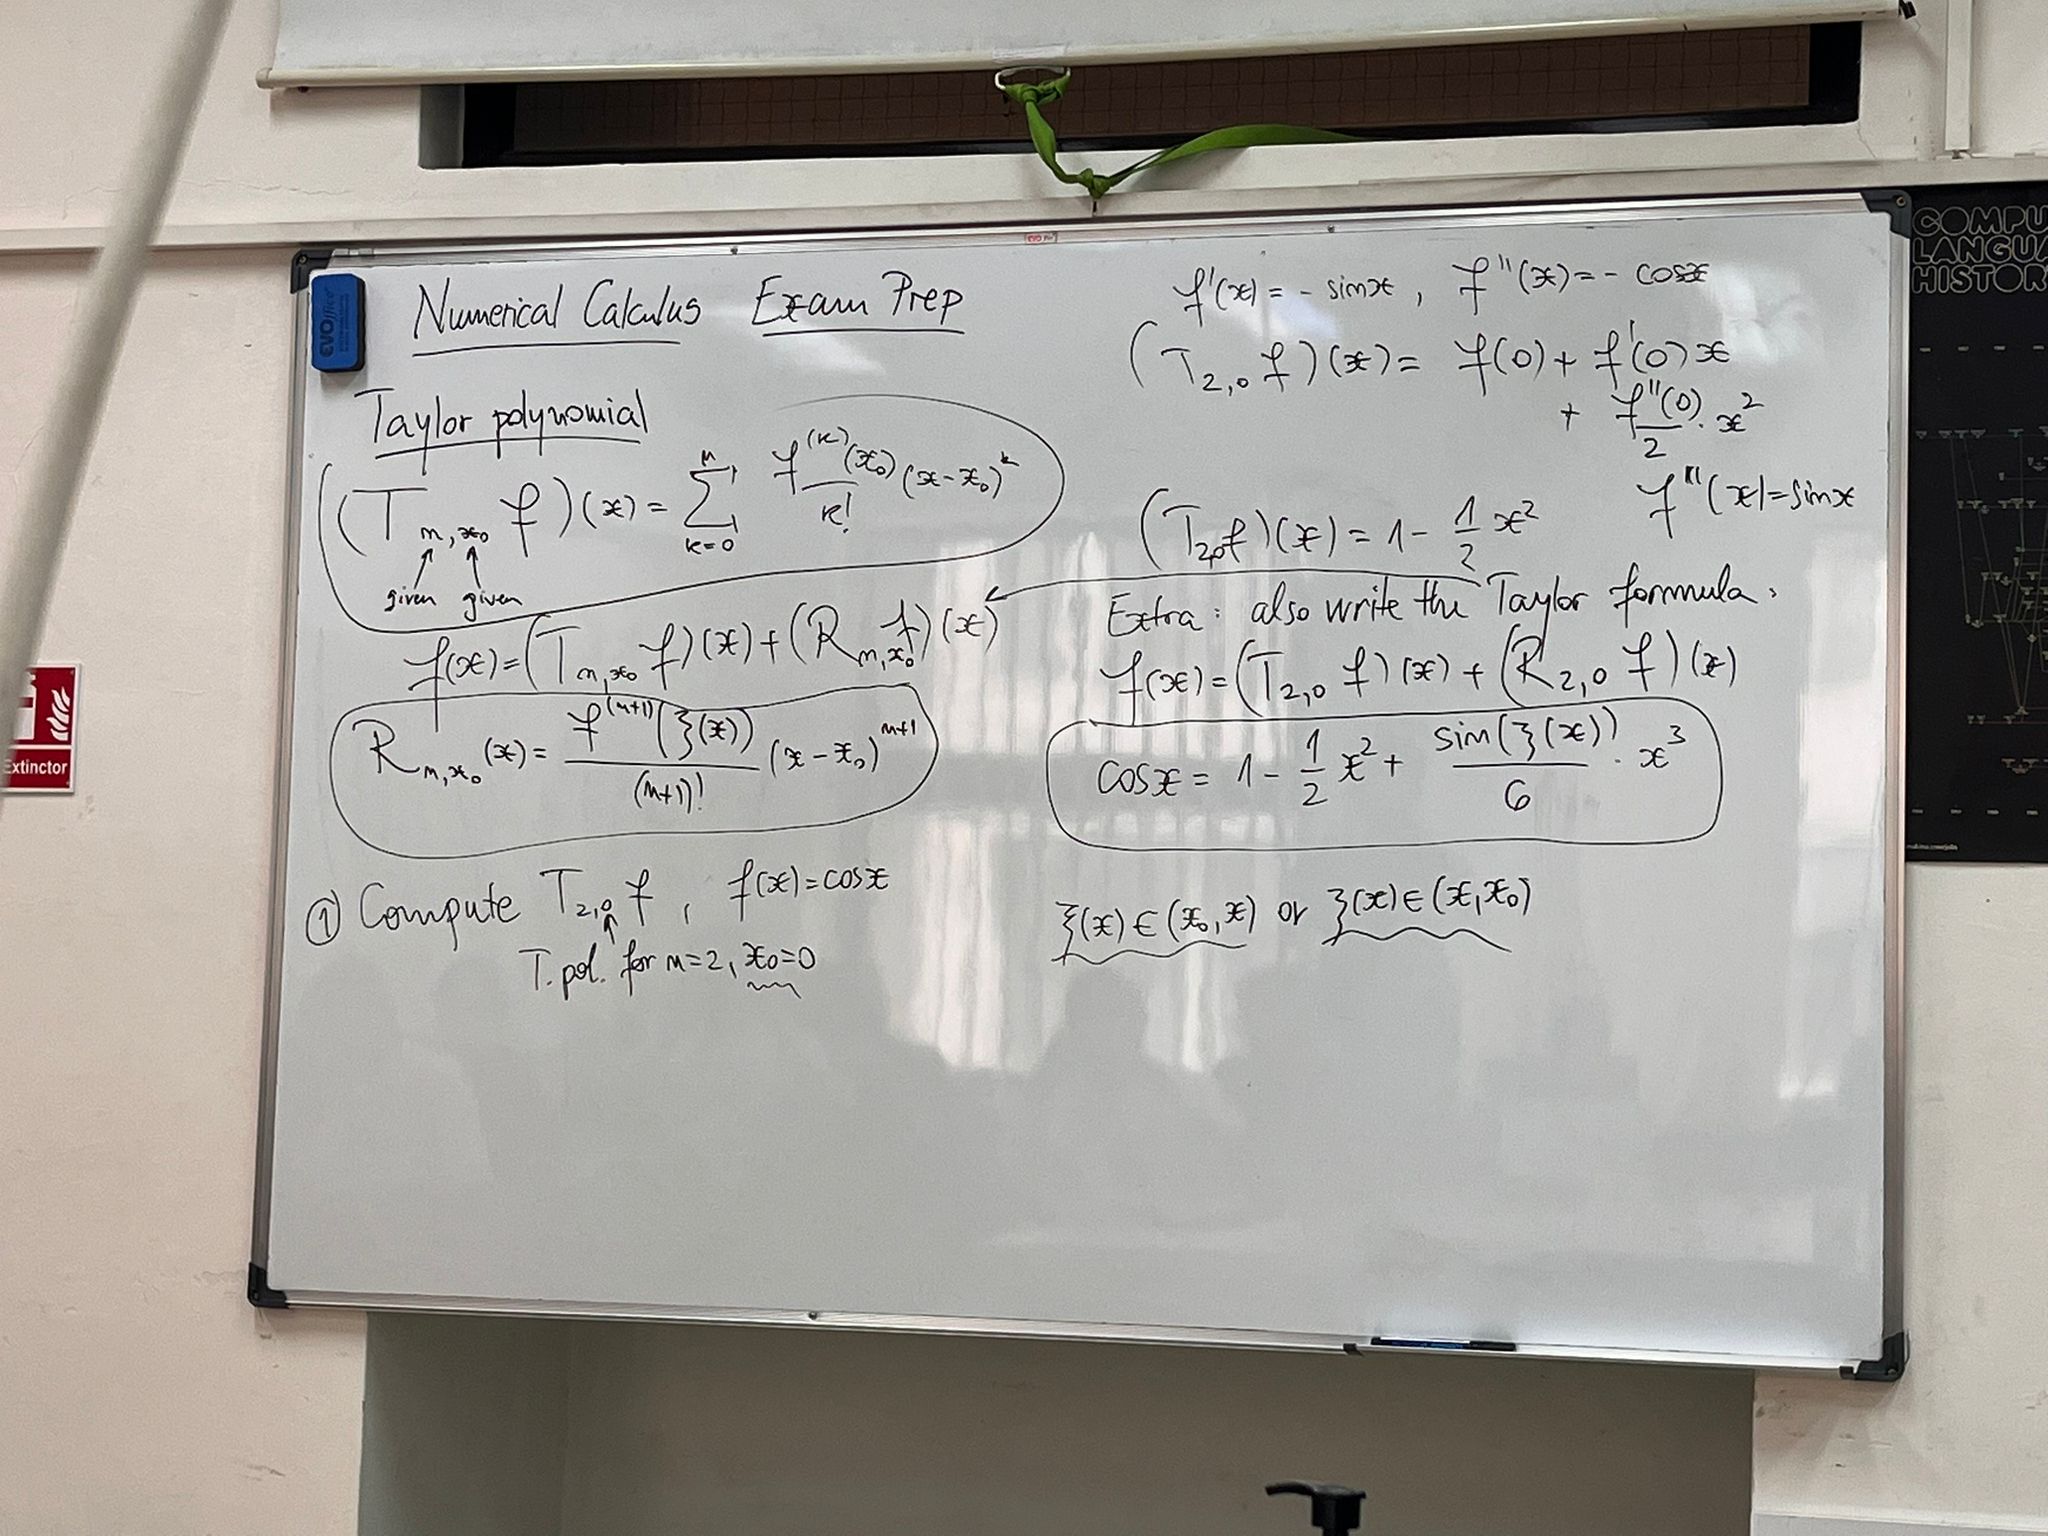 Numerical Calculus Exam Prep
Taylor polynomial
(T_{n,x₀} f)(x) = Σ_{k=0}^{n} f^{(k)}(x₀)/k! (x-x₀)^k
given given
f(x) = (T_{n,x₀} f)(x) + (R_{n,x₀} f)(x)
R_{n,x₀}(x) = f^{(n+1)}(ξ(x))/(n+1)! (x-x₀)^{n+1}
① Compute T_{2,0} f, f(x)=cosx
T. pol. for n=2, x₀=0
f'(x) = - sinx, f''(x) = - cosx
(T_{2,0} f)(x) = f(0) + f'(0)x
+ f''(0)/2 · x²
f'''(x)=sinx
(T_{2,0}f)(x) = 1 - 1/2 x²
Extra: also write the Taylor formula.
f(x) = (T_{2,0} f)(x) + (R_{2,0} f)(x)
cosx = 1 - 1/2 x² + sin(ξ(x))/6 · x³
ξ(x) ∈ (x₀, x) or ξ(x) ∈ (x, x₀)
EVOffice
Extinctor
COMPU
LANGUA
HISTOR